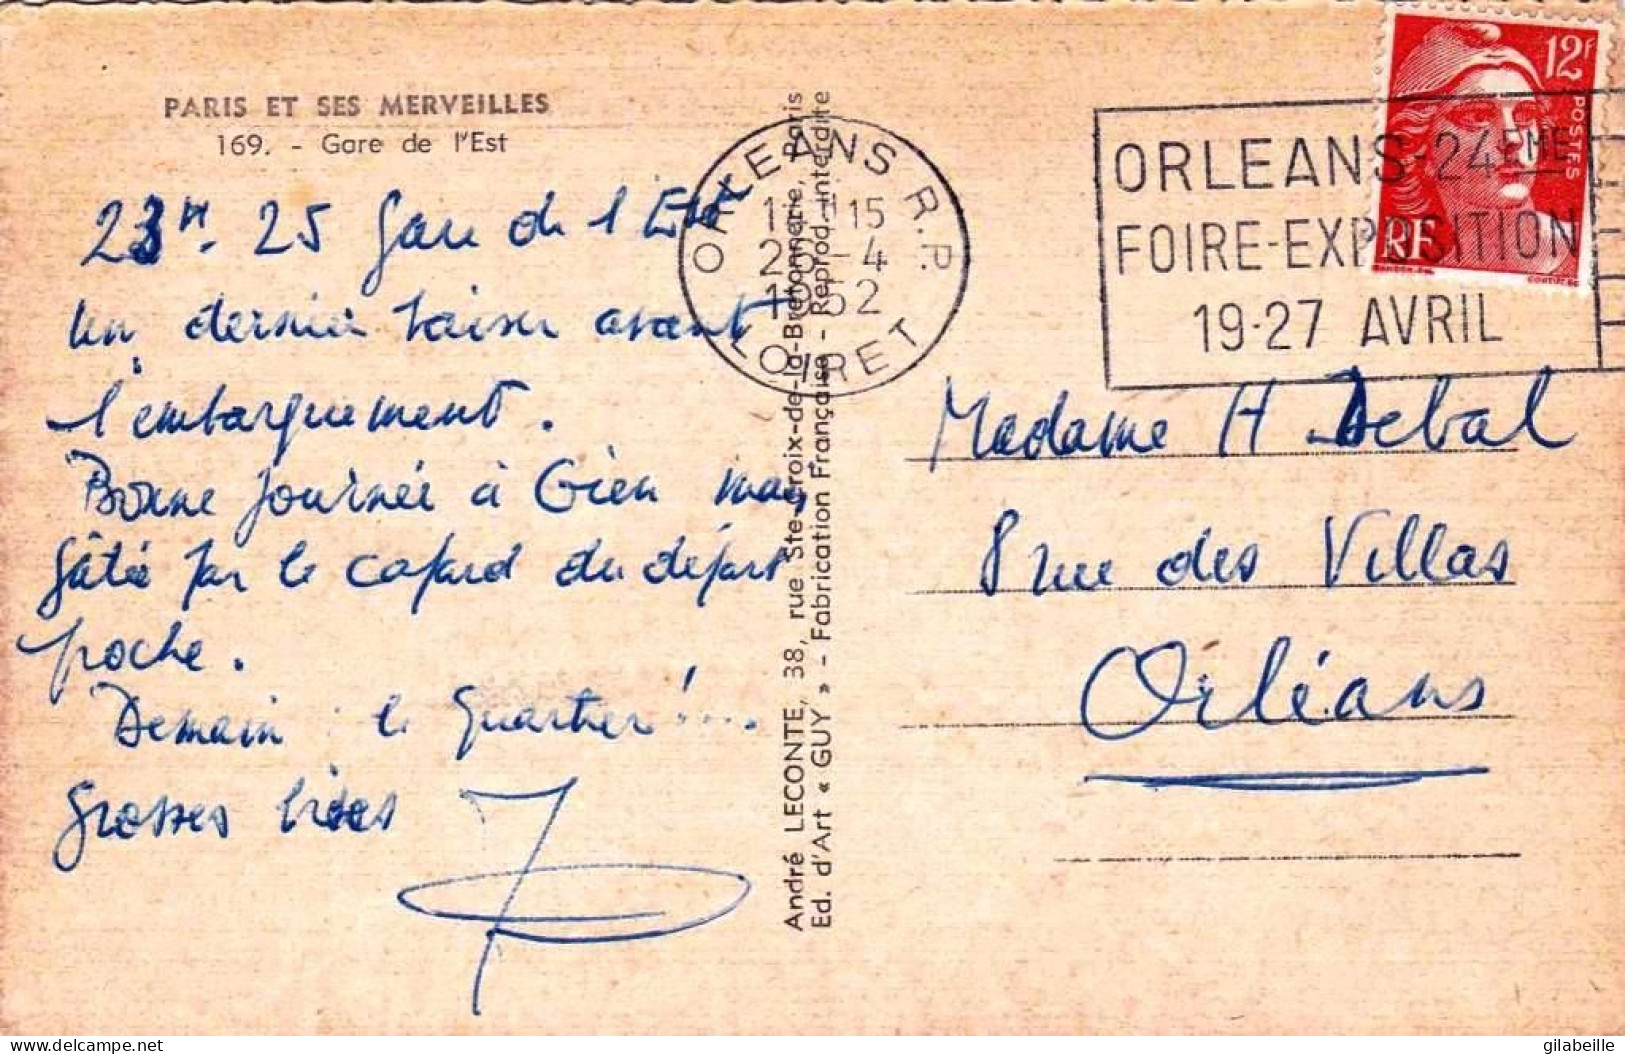 PARIS ET SES MERVEILLES
169. - Gare de l'Est
23H. 25 Gare de l'Est
Un dernier baiser avant
l'embarquement.
Bonne journée à Gien mais
gâtée par le cafard du départ
proche.
Demain le quartier !...
Grosses bises
André LECONTE, 38, rue Ste-Croix-de-la-Bretonnerie, Paris
Ed. d'Art « GUY » - Fabrication Française - Reprod. interdite
ORLEANS R.P.
15
20-4
1952
LOIRET
ORLEANS-24EME
FOIRE-EXPOSITION
19-27 AVRIL
12F
POSTES
RF
Madame H Debal
8 rue des Villas
Orléans
gilabeille